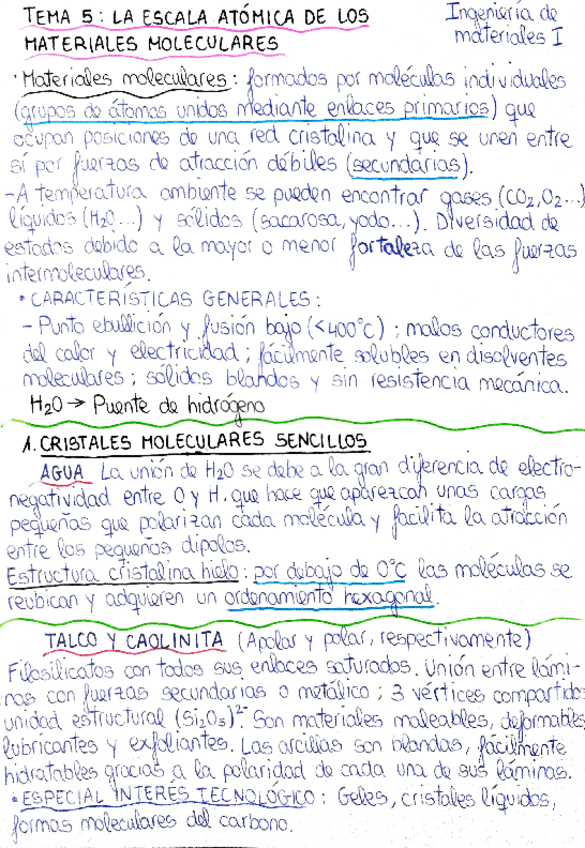 TEMA 5: LA ESCALA ATÓMICA DE LOS
MATERIALES MOLECULARES
Ingeniería de
materiales I
· Materiales moleculares: formados por moléculas individuales
(grupos de átomos unidos mediante enlaces primarios) que
ocupan posiciones de una red cristalina y que se unen entre
sí por fuerzas de atracción débiles (secundarias).
-A temperatura ambiente se pueden encontrar gases (CO2,O2...)
líquidos (H2O...) y sólidos (sacarosa, yodo...). Diversidad de
estados debido a la mayor o menor fortaleza de las fuerzas
intermoleculares.
• CARACTERÍSTICAS GENERALES:
- Punto ebullición y fusión bajo (<400°C) ; malos conductores
del calor y electricidad ; fácilmente solubles en disolventes
moleculares ; sólidos blandos y sin resistencia mecánica.
H2O → Puente de hidrógeno
1. CRISTALES MOLECULARES SENCILLOS
AGUA La unión de H2O se debe a la gran diferencia de electro-
negatividad entre O y H, que hace que aparezcan unas cargas
pequeñas que polarizan cada molécula y facilita la atracción
entre los pequeños dipolos.
Estructura cristalina hielo: por debajo de 0°C las moléculas se
reubican y adquieren un ordenamiento hexagonal.
TALCO Y CAOLINITA (Apolar y polar, respectivamente)
Filosilicatos con todos sus enlaces saturados. Unión entre lámi-
nas con fuerzas secundarias o metálico ; 3 vértices compartidos
unidad estructural (Si2O5)2-. Son materiales maleables, deformables,
lubricantes y exfoliantes. Las arcillas son blandas, fácilmente
hidratables gracias a la polaridad de cada una de sus láminas.
• ESPECIAL INTERES TECNOLÓGICO: Geles, cristales líquidos,
formas moleculares del carbono.